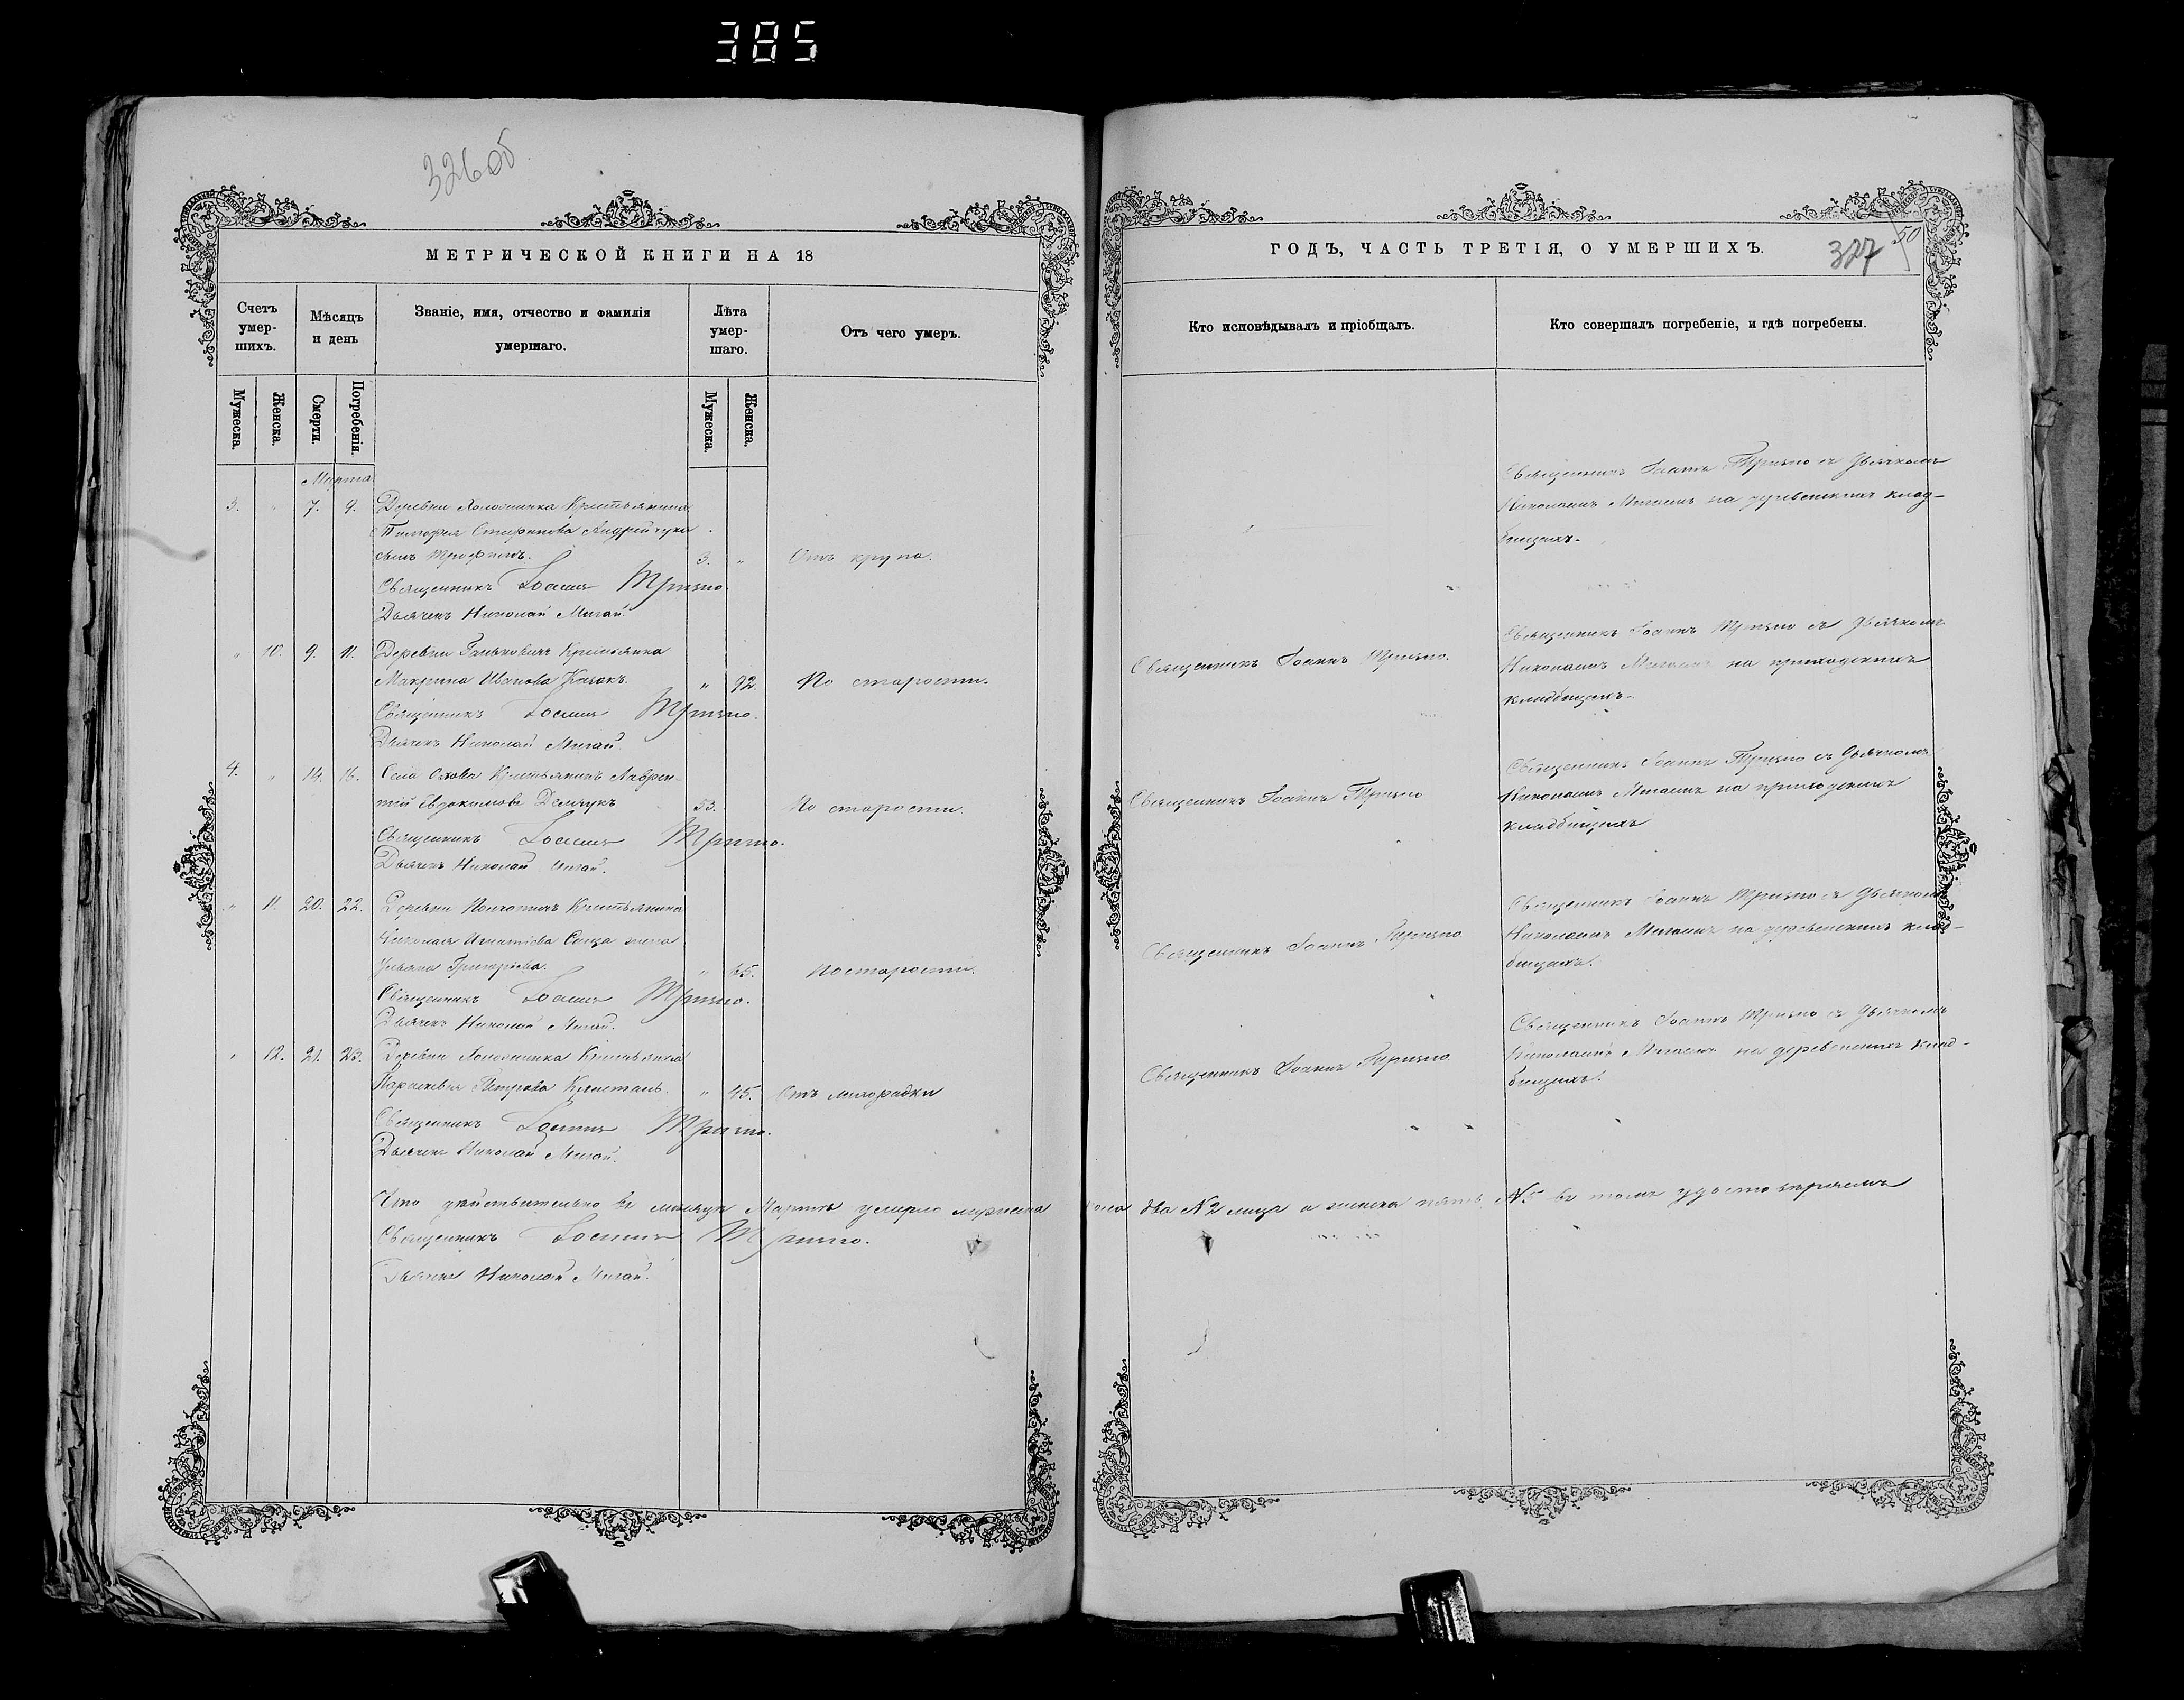 385
326об
МЕТРИЧЕСКОЙ КНИГИ НА 18
Счетъ умер-шихъ.
Мѣсяцъ и день
Званіе, имя, отчество и фамилія умершаго.
Лѣта умер-шаго.
Отъ чего умеръ.
Мужеска.
Женска.
Смерти.
Погребенія.
Мужеска.
Женска.
Марта
3. " 7. 9. Деревни Крестьянина
Тимофея Стефанова Андрейчука
сынъ Трофимъ. 3. " Отъ крупа.
Священникъ Іоаннъ Тризно
Дьячекъ Николай Мигай.
" 10. 9. 11. Деревни Ганьковичъ Крестьянка
Макрина Иванова Козакъ. " 92. По старости.
Священникъ Іоаннъ Тризно.
Дьячекъ Николай Мигай.
4. " 14. 16. Села Озова Крестьянинъ Лаврен-
тій Евдокимовъ Демчукъ 53. По старости.
Священникъ Іоаннъ Тризно.
Дьячекъ Николай Мигай.
" 11. 20. 22. Деревни Крестьянина
Николая Игнатіева жена
Ульяна Григорьева. " 65. По старости.
Священникъ Іоаннъ Тризно.
Дьячекъ Николай Мигай.
" 12. 21. 23. Деревни Крестьянка
Параскевія Петрова " 45. Отъ лихорадки
Священникъ Іоаннъ Тризно.
Дьячекъ Николай Мигай.
Что действительно въ месяце Марте умерло мужеска
Священникъ Іоаннъ Тризно.
Дьячекъ Николай Мигай.
ГОДЪ, ЧАСТЬ ТРЕТІЯ, О УМЕРШИХЪ.
327
50
Кто исповѣдывалъ и пріобщалъ.
Кто совершалъ погребеніе, и гдѣ погребены.
Священникъ Іоаннъ Тризно съ Дьячкомъ
Николаемъ Мигаемъ на деревенскихъ клад-
бищахъ.
Священникъ Іоаннъ Тризно.
Священникъ Іоаннъ Тризно съ Дьячкомъ
Николаемъ Мигаемъ на приходскихъ
кладбищахъ.
Священникъ Іоаннъ Тризно
Священникъ Іоаннъ Тризно съ Дьячкомъ
Николаемъ Мигаемъ на приходскихъ
кладбищахъ
Священникъ Іоаннъ Тризно
Священникъ Іоаннъ Тризно съ Дьячкомъ
Николаемъ Мигаемъ на деревенскихъ клад-
бищахъ.
Священникъ Іоаннъ Тризно
Священникъ Іоаннъ Тризно съ Дьячкомъ
Николаемъ Мигаемъ на деревенскихъ клад-
бищахъ.
пола два №2 лица а женска пять №5 въ томъ удостоверяемъ